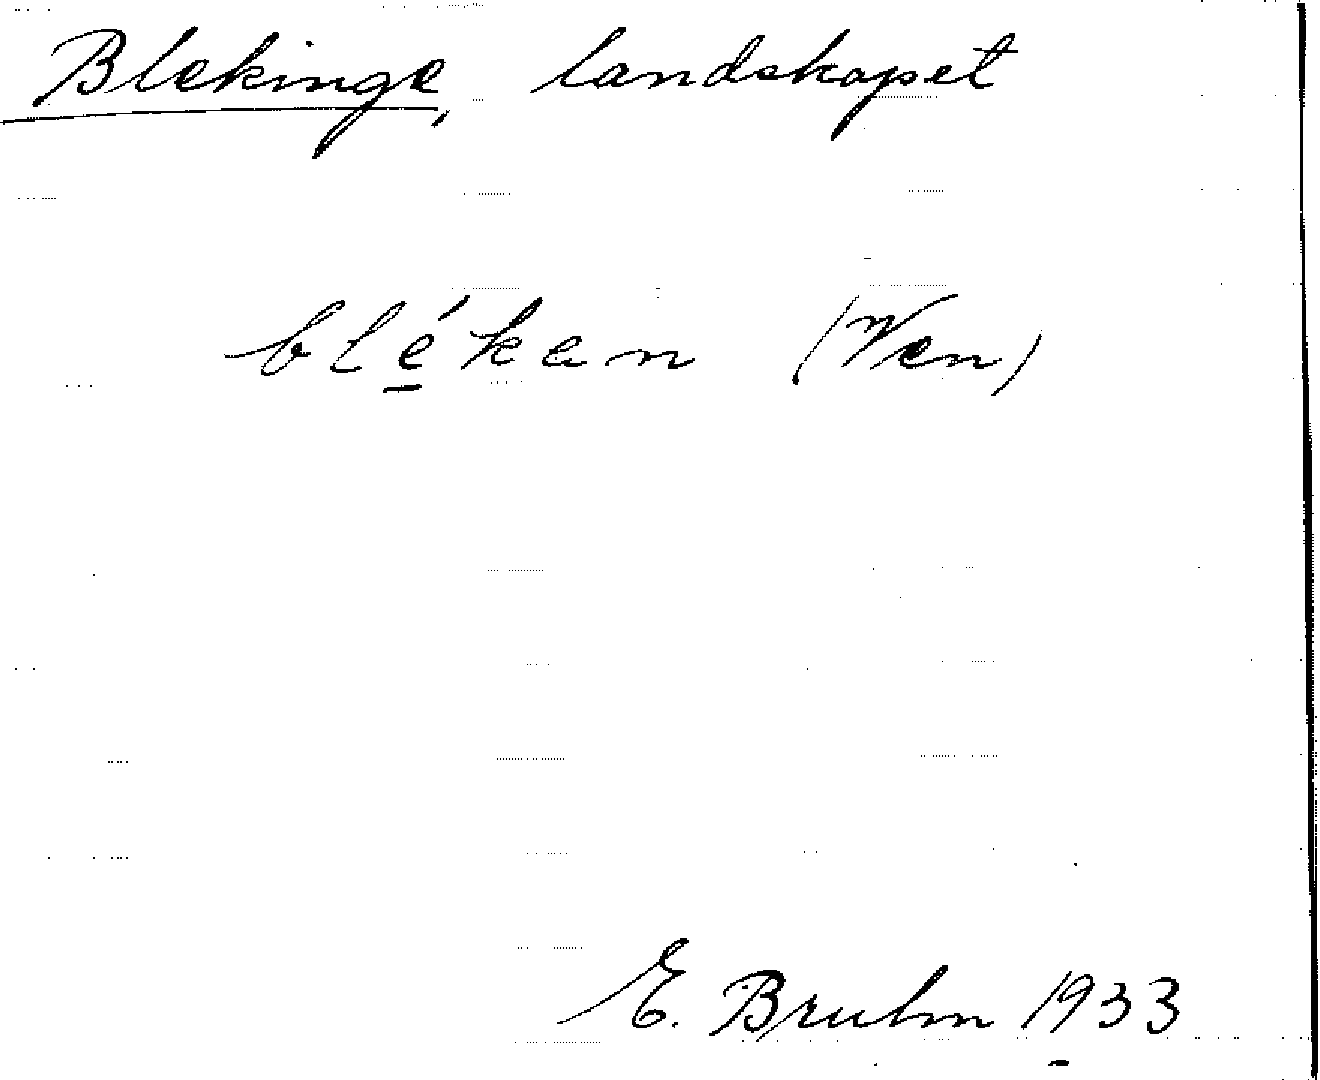 Blekinge, landskapet
bléken (Ven)
E. Bruhn 1933